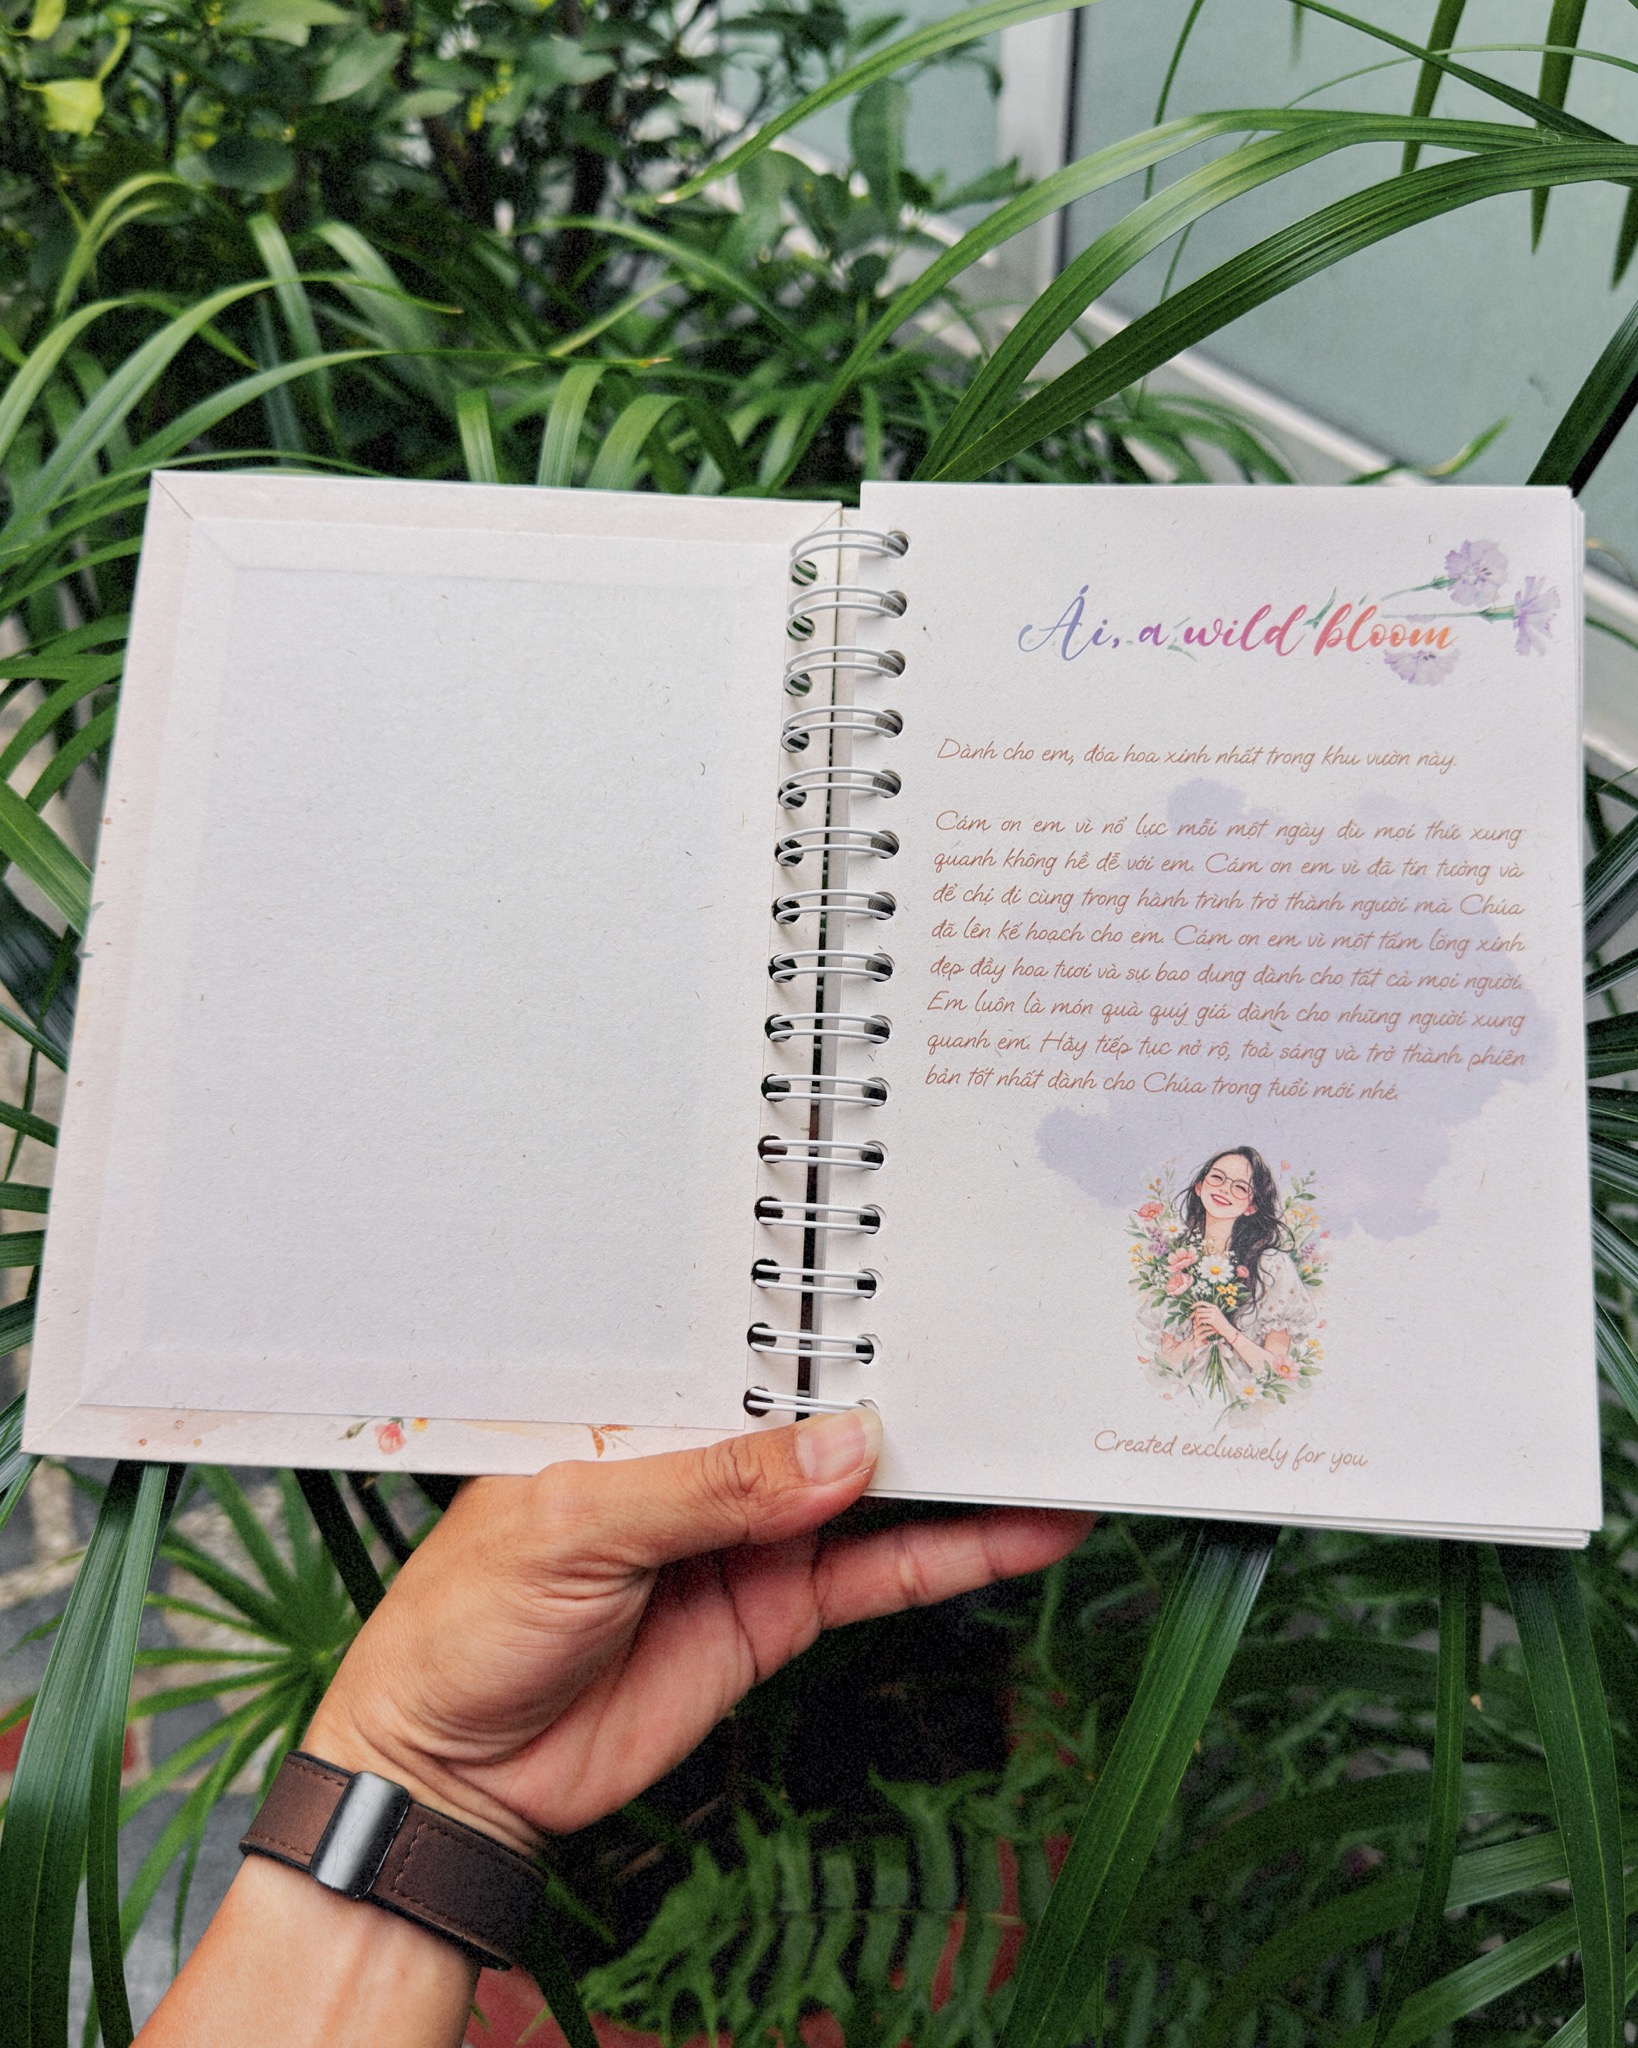 Ái, a wild bloom
Dành cho em, đóa hoa xinh nhất trong khu vườn này.
Cám ơn em vì nổ lực mỗi một ngày dù mọi thứ xung
quanh không hề dễ với em. Cám ơn em vì đã tin tưởng và
để chị đi cùng trong hành trình trở thành người mà Chúa
đã lên kế hoạch cho em. Cám ơn em vì một tấm lòng xinh
đẹp đầy hoa tươi và sự bao dung dành cho tất cả mọi người.
Em luôn là món quà quý giá dành cho những người xung
quanh em. Hãy tiếp tục nở rộ, toả sáng và trở thành phiên
bản tốt nhất dành cho Chúa trong tuổi mới nhé.
Created exclusively for you